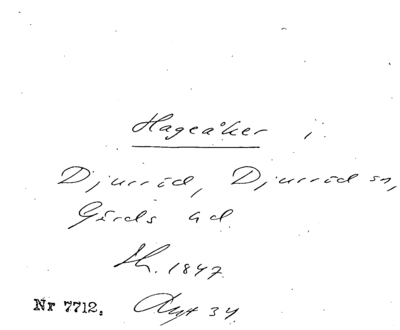 Hageåker i
Djurröd, Djurröd sn,
Gärds hd.
Sk. 1847
Nr 7712. Avst 34